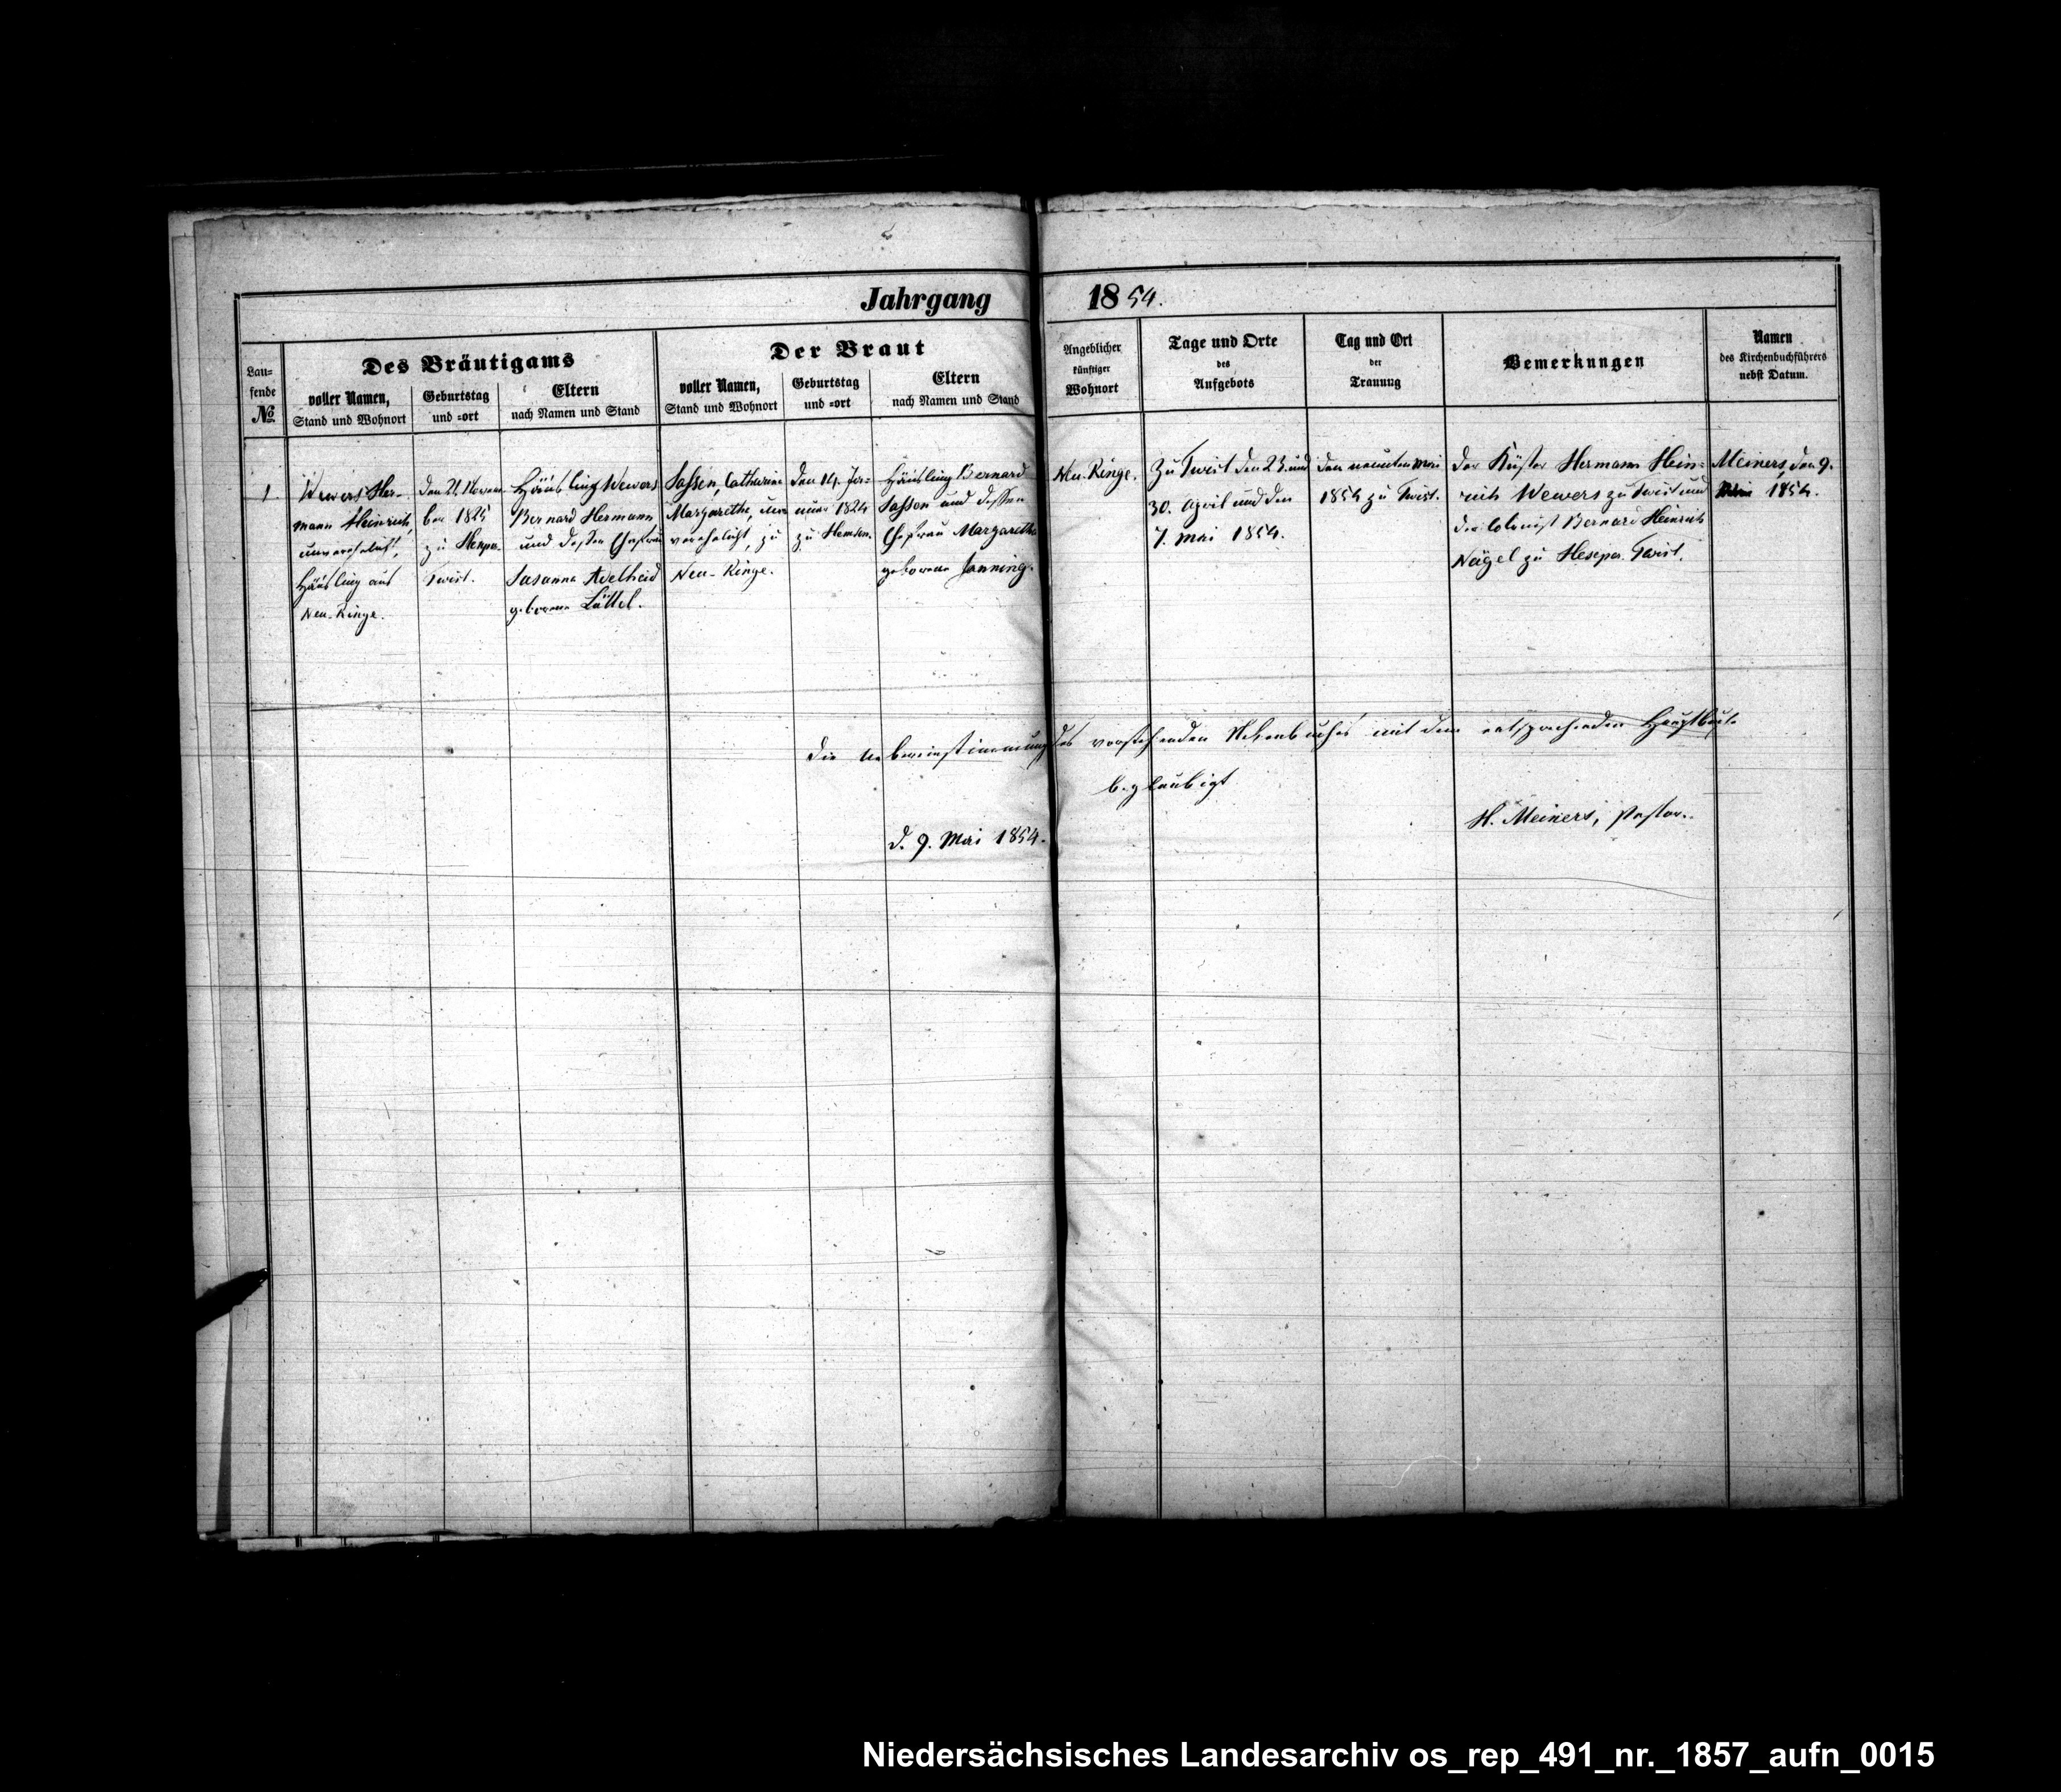 Jahrgang 1854.
Laufende №
Des Bräutigams
voller Namen,
Stand und Wohnort
Geburtstag
und =ort
Eltern
nach Namen und Stand
Der Braut
voller Namen,
Stand und Wohnort
Geburtstag
und =ort
Eltern
nach Namen und Stand
Angeblicher
künftiger
Wohnort
Tage und Orte
des
Aufgebots
Tag und Ort
der
Trauung
Bemerkungen
Namen
des Kirchenbuchführers
nebst Datum.
1.
Wewers Her-
mann Heinrich,
unverehelicht,
Häusling aus
Neu-Ringe.
den 21. Novem
ber 1825
zu Hesper-
Twist.
Häusling Wewers
Bernard Hermann
und dessen Ehefrau
Susanna Adelheid
geborene Lüttel.
Sassen, Catharina
Margarethe, un
verehelicht, zu
Neu-Ringe.
den 14. Ja=
nuar 1824
zu Hemsen.
Häusling Bernard
Sassen und dessen
Ehefrau Margaretha
geborene Janning.
Neu-Ringe.
Zu Twist den 23. und
30. April und den
7. Mai 1854.
den neunten Mai
1854 zu Twist.
Der Küster Hermann Hein=
rich Wewers zu Twist und
der Colonist Bernard Heinrich
Nägel zu Heseper-Twist.
Meiners, den 9.
Mai 1854.
Die Uebereinstimmung des vorstehenden Nebenbuches mit dem entsprechenden Hauptbuche
beglaubigt
d. 9. Mai 1854.
H. Meiners, Pastor.
Niedersächsisches Landesarchiv os_rep_491_nr._1857_aufn_0015